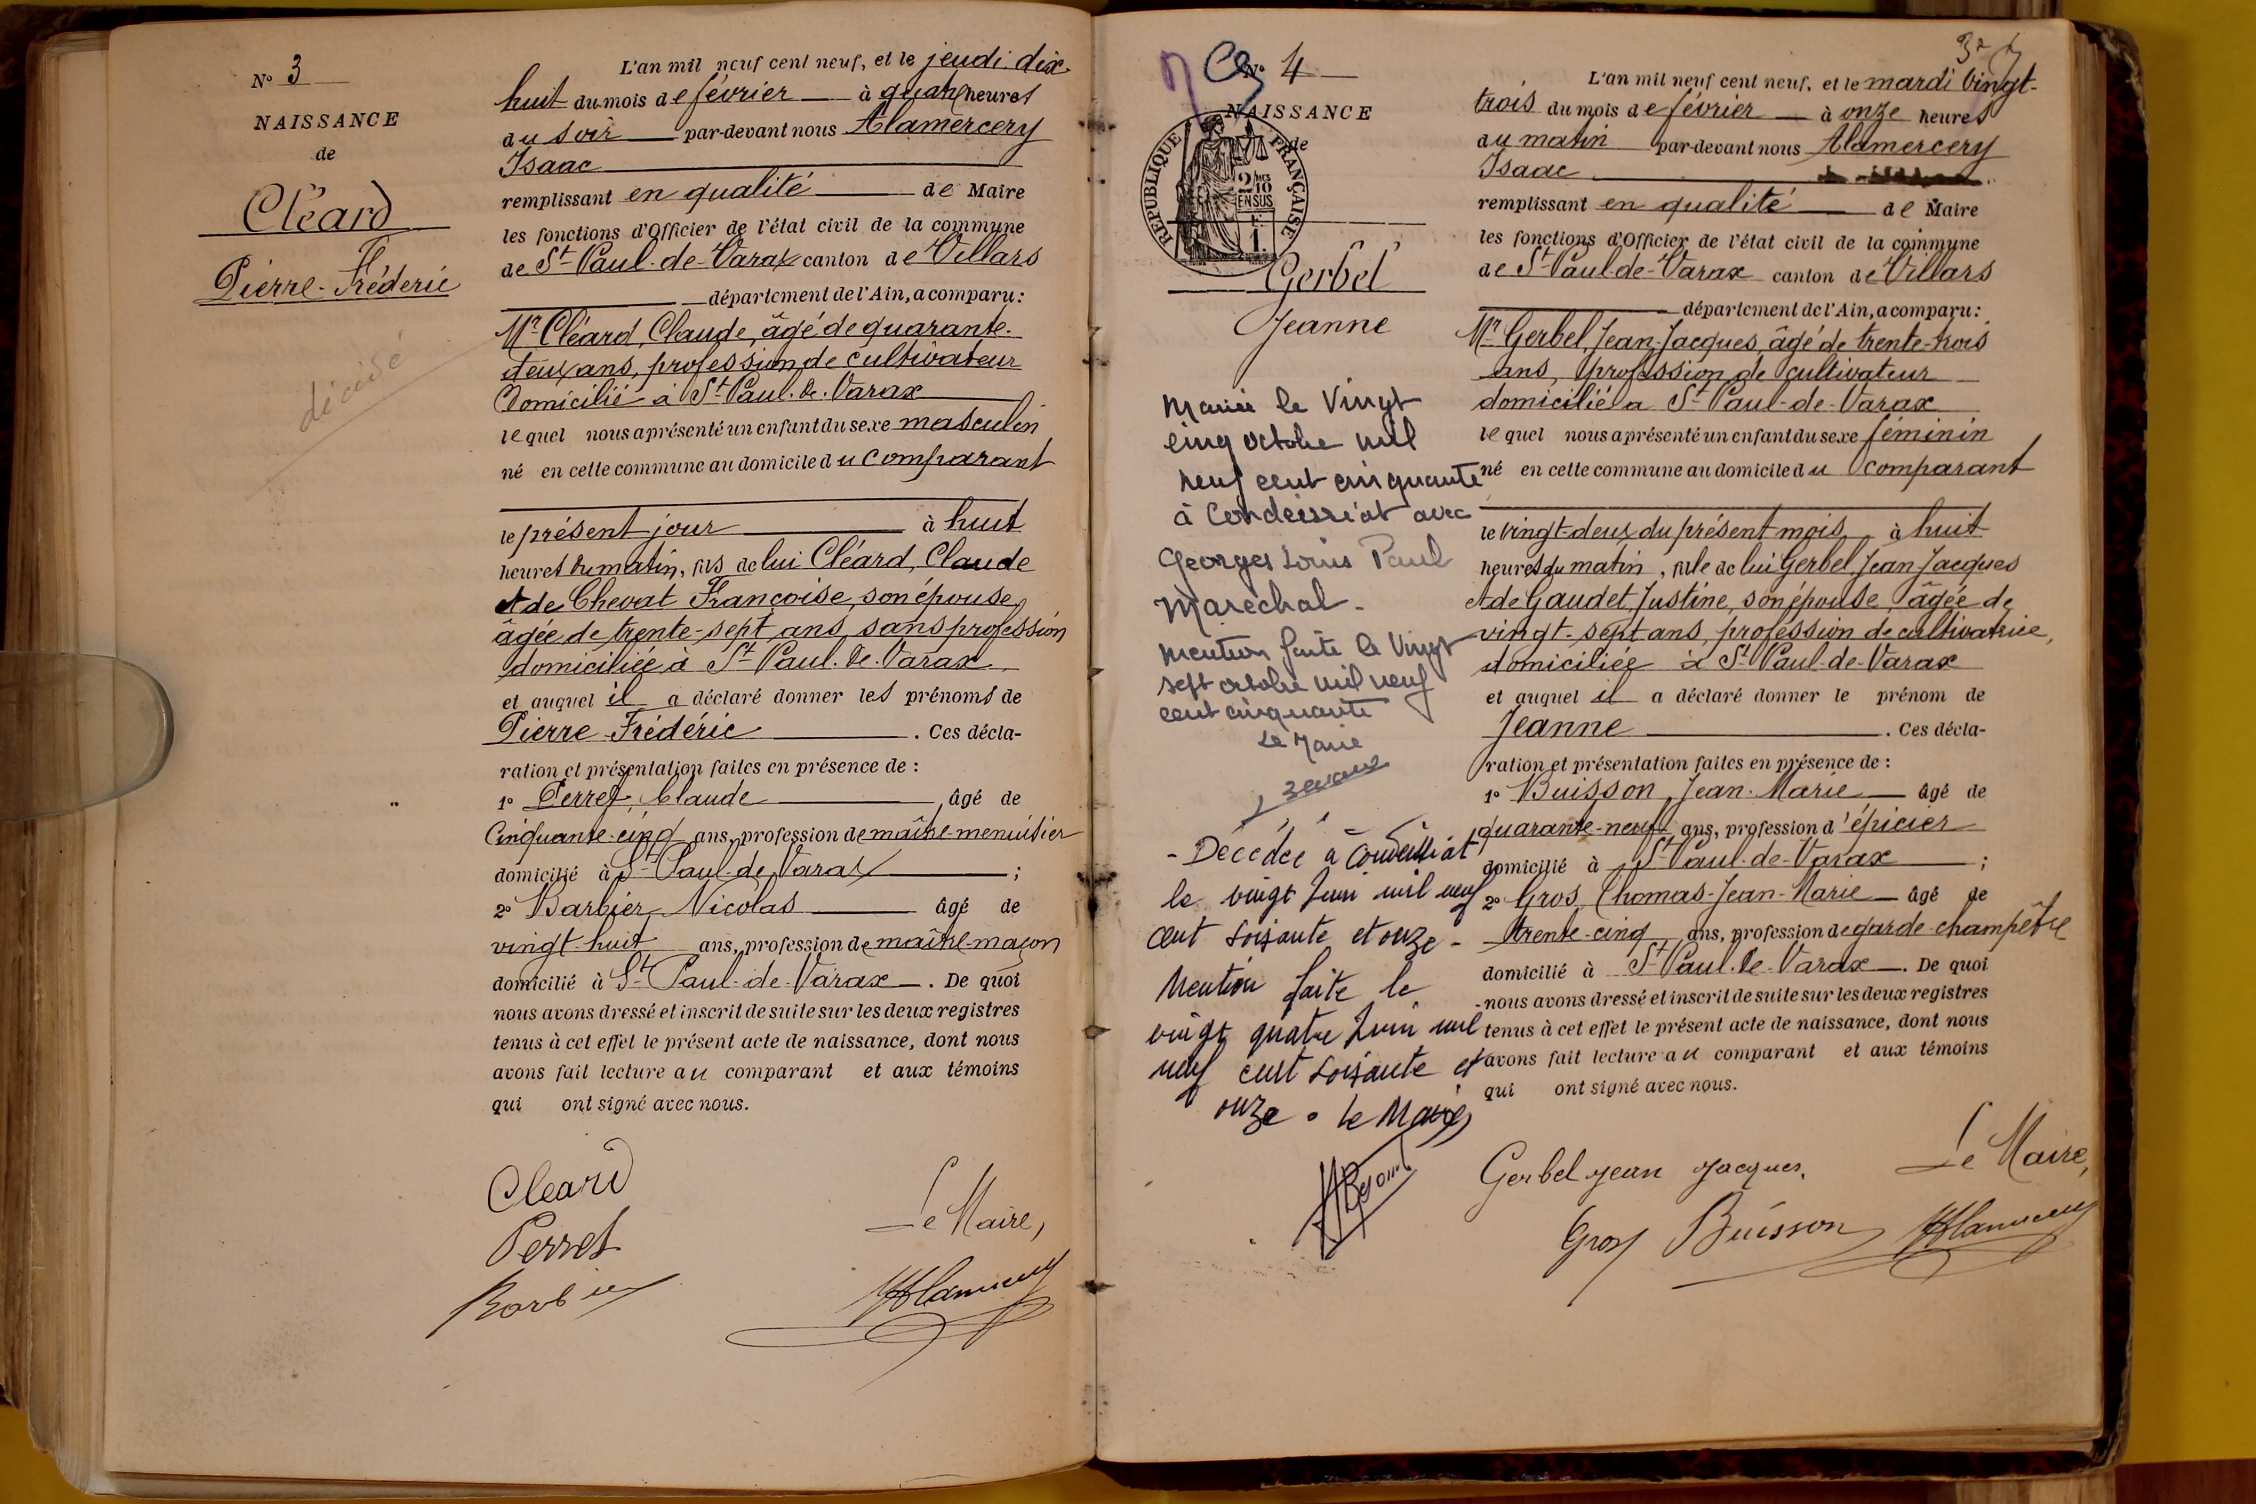 N° 3
NAISSANCE
de
Cléard
Pierre-Fréderic
décédé
L'an mil neuf cent neuf, et le jeudi dix
huit du mois de février à quatre heures
du soir par-devant nous Alamercery
Isaac
remplissant en qualité de Maire
les fonctions d'Officier de l'état civil de la commune
de St Paul-de-Varax canton de Villars
département de l'Ain, a comparu:
Mr Cléard, Claude, âgé de quarante-
deux ans, profession de cultivateur
domicilié à St Paul-de-Varax
lequel nous a présenté un enfant du sexe masculin
né en cette commune au domicile du comparant
le présent jour à huit
heures du matin, fils de lui Cléard, Claude
et de Chevat Françoise, son épouse,
âgée de trente-sept ans, sans profession
domiciliée à St Paul-de-Varax
et auquel il a déclaré donner les prénoms de
Pierre-Frédéric. Ces décla-
ration et présentation faites en présence de :
1° Perret, Claude, âgé de
cinquante-cinq ans, profession de maître-menuisier
domicilié à St Paul-de-Varax ;
2° Barbier Nicolas âgé de
vingt-huit ans, profession de maître-maçon
domicilié à St Paul-de-Varax. De quoi
nous avons dressé et inscrit de suite sur les deux registres
tenus à cet effet le présent acte de naissance, dont nous
avons fait lecture au comparant et aux témoins
qui ont signé avec nous.
Cleard
Perret
Barbier
Le Maire,
N° 4
NAISSANCE
de
RÉPUBLIQUE FRANÇAISE
2/10
EN SUS
1
Gerbel
Jeanne
Mariée le vingt
cinq octobre mil
neuf cent cinquante
à Condeissiat avec
Georges Louis Paul
Maréchal.
Mention faite le vingt
sept octobre mil neuf
cent cinquante
Le Maire
- Décédée à Condeissiat
le vingt Juin mil neuf
cent soixante et onze -
Mention faite le
vingt quatre Juin mil
neuf cent soixante et
onze. Le Maire
L'an mil neuf cent neuf, et le mardi vingt-
trois du mois de février à onze heures
du matin par-devant nous Alamercery
Isaac
remplissant en qualité de Maire
les fonctions d'Officier de l'état civil de la commune
de St Paul-de-Varax canton de Villars
département de l'Ain, a comparu:
Mr Gerbel, Jean-Jacques, âgé de trente-trois
ans, profession de cultivateur
domicilié à St Paul-de-Varax
lequel nous a présenté un enfant du sexe féminin
né en cette commune au domicile du comparant
le vingt-deux du présent mois à huit
heures du matin, fille de lui Gerbel, Jean Jacques
et de Gaudet, Justine, son épouse, âgée de
vingt-sept ans, profession de cultivatrice,
domiciliée à St Paul-de-Varax
et auquel il a déclaré donner le prénom de
Jeanne. Ces décla-
ration et présentation faites en présence de :
1° Buisson, Jean-Marie âgé de
quarante-neuf ans, profession d'épicier
domicilié à St Paul-de-Varax ;
2° Gros, Thomas-Jean-Marie âgé de
trente-cinq ans, profession de garde-champêtre
domicilié à St Paul-de-Varax. De quoi
nous avons dressé et inscrit de suite sur les deux registres
tenus à cet effet le présent acte de naissance, dont nous
avons fait lecture au comparant et aux témoins
qui ont signé avec nous.
Gerbel Jean Jacques.
Le Maire,
Gros Buisson